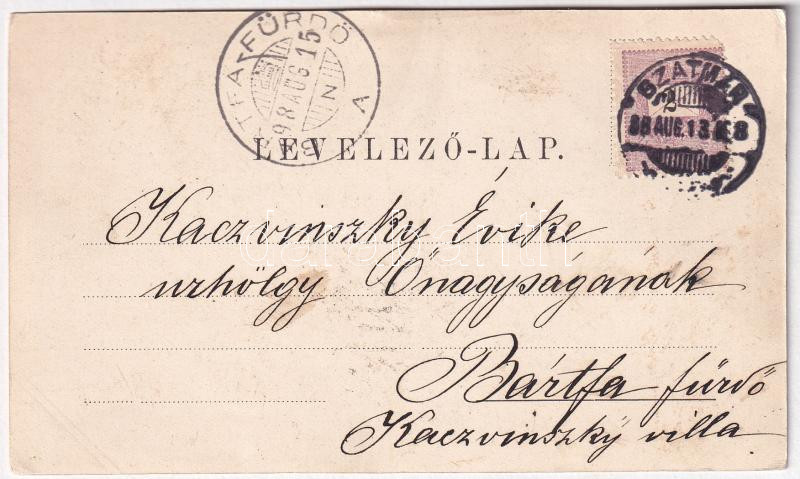 BÁRTFA-FÜRDŐ
98 AUG. 15
N
A
SZATMÁR
98 AUG. 13.
LEVELEZŐ-LAP.
Kaczvinszky Évike
urhölgy Őnagyságának
Bártfa fürdő
Kaczvinszky villa